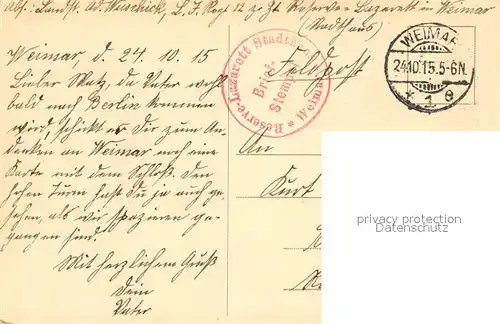 Abs: Landst. Ad. Muschick, L. J. Regt 12 z. Zt. Reserve-Lazarett in Weimar
(Stadthaus)
Weimar, d. 24. 10. 15
Lieber Matz, da Vater wohl
bald nach Berlin kommen
wird, schickt er Dir zum An-
denken an Weimar noch eine
Karte mit dem Schloß. Den
hohen Turm hast Du ja auch ge-
sehen, als wir spazieren ge-
gangen sind.
Mit herzlichem Gruß
Dein
Vater
Reserve-Lazarett Stadth
Weimar
Brief-
Stem
Feldpost
WEIMAR
24.10.15.5-6N.
* 1 e
An
Kurt
privacy protection
VERDECKT